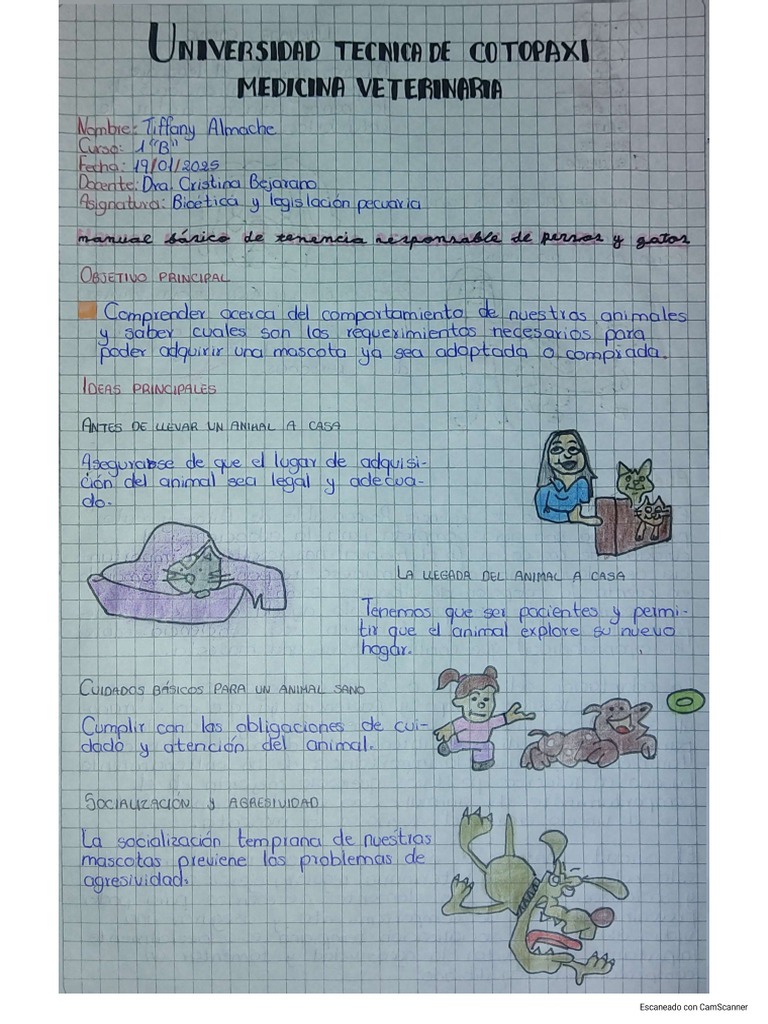 UNIVERSIDAD TECNICA DE COTOPAXI
MEDICINA VETERINARIA
Nombre: Tiffany Almache
Curso: 1 "B"
Fecha: 19/01/2025
Docente: Dra. Cristina Bejarano
Asignatura: Bioética y legislación pecuaria
manual básico de tenencia responsable de perros y gatos
OBJETIVO PRINCIPAL
Comprender acerca del comportamiento de nuestras animales
y saber cuales son los requerimientos necesarios para
poder adquirir una mascota ya sea adoptada o comprada.
IDEAS PRINCIPALES
ANTES DE LLEVAR UN ANIMAL A CASA
Asegurarse de que el lugar de adquisi-
ción del animal sea legal y adecua-
do.
LA LLEGADA DEL ANIMAL A CASA
Tenemos que ser pacientes y permi-
tir que el animal explore su nuevo
hogar.
CUIDADOS BÁSICOS PARA UN ANIMAL SANO
Cumplir con las obligaciones de cui-
dado y atención del animal.
SOCIALIZACIÓN Y AGRESIVIDAD
La socialización temprana de nuestras
mascotas previene los problemas de
agresividad.
Escaneado con CamScanner